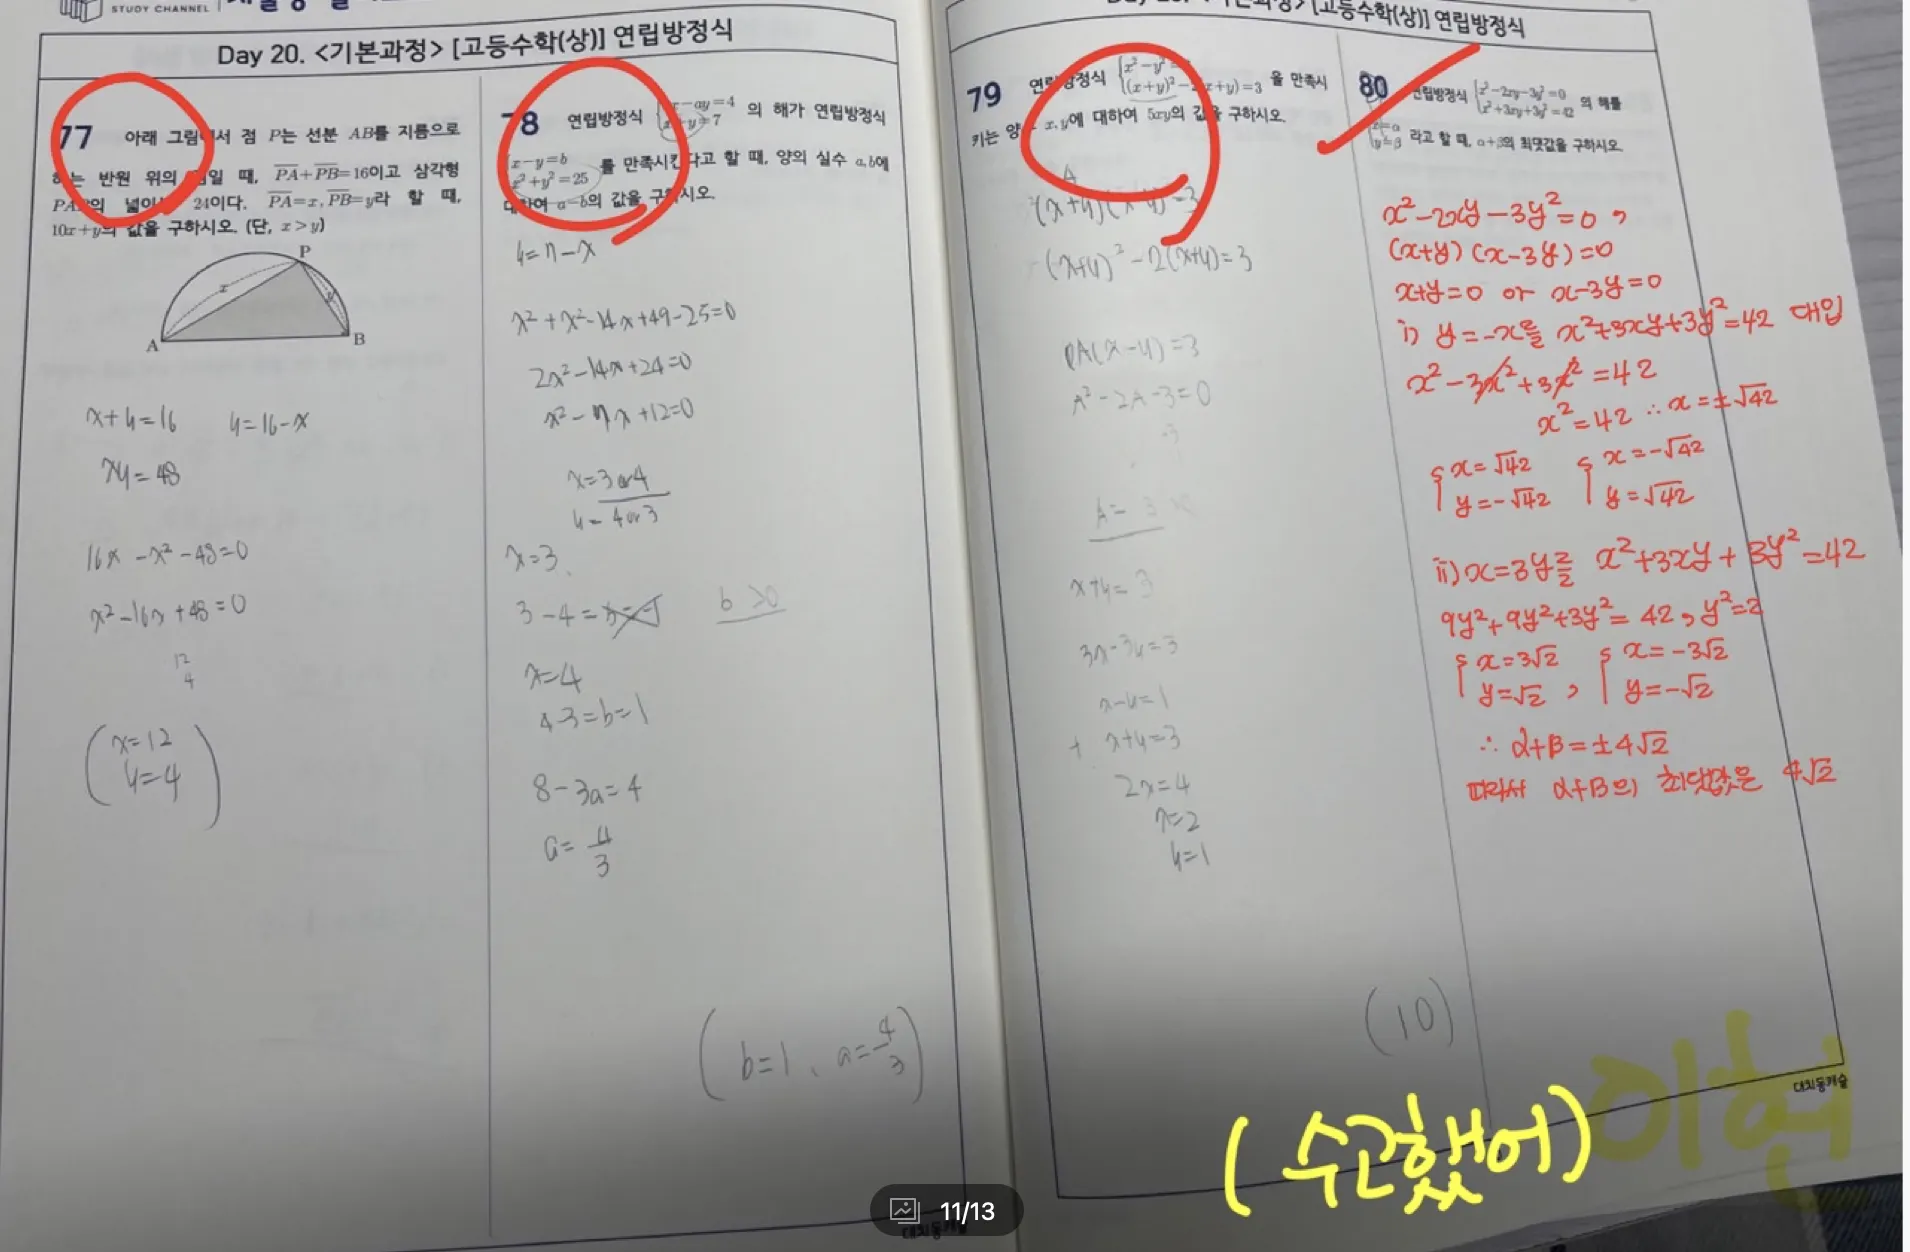 STUDY CHANNEL
Day 20. <기본과정> [고등수학(상)] 연립방정식
77 아래 그림에서 점 P는 선분 AB를 지름으로
하는 반원 위의 점일 때, PA+PB=16이고 삼각형
PAB의 넓이는 24이다. PA=x, PB=y라 할 때,
10x+y의 값을 구하시오. (단, x>y)
P
x
y
A
B
x+y=16 y=16-x
xy=48
16x-x²-48=0
x²-16x+48=0
12
4
(x=12
y=4)
78 연립방정식 x-ay=4
x+y=7 의 해가 연립방정식
x-y=b
x²+y²=25 를 만족시킨다고 할 때, 양의 실수 a, b에
대하여 a-b의 값을 구하시오.
y=7-x
x²+x²-14x+49-25=0
2x²-14x+24=0
x²-7x+12=0
x=3 or 4
y=4 or 3
x=3
3-4=
b>0
x=4
4-3=b=1
8-3a=4
a=4/3
(b=1, a=4/3)
대치동캐슬
[고등수학(상)] 연립방정식
79 연립방정식 x²-y²=
(x+y)²-2(x+y)=3 을 만족시
키는 양 x, y에 대하여 5xy의 값을 구하시오.
A
(x+y)(x-y)=3
(x+y)²-2(x+y)=3
A(x-y)=3
A²-2A-3=0
-3
A=3
x+y=3
3x-3y=3
x-y=1
+ x+y=3
2x=4
x=2
y=1
(10)
80 연립방정식 x²-2xy-3y²=0
x²+3xy+3y²=42 의 해를
x=α
y=β 라고 할 때, α+β의 최댓값을 구하시오.
x²-2xy-3y²=0,
(x+y)(x-3y)=0
x+y=0 or x-3y=0
i) y=-x를 x²+3xy+3y²=42 대입
x²-3x²+3x²=42
x²=42 ∴x=±√42
x=√42 x=-√42
y=-√42 y=√42
ii) x=3y를 x²+3xy+3y²=42
9y²+9y²+3y²=42, y²=2
x=3√2 x=-3√2
y=√2 , y=-√2
∴ α+β=±4√2
따라서 α+β의 최댓값은 4√2
대치동캐슬
이현
(수고했어)
11/13